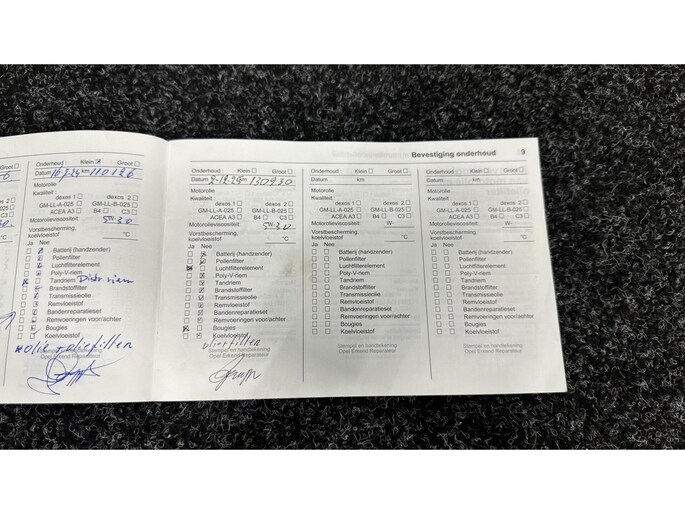 Bevestiging onderhoud 9
Onderhoud : Klein ☒ Groot ☐
Datum 16.3.24 km 110126
Motorolie
Kwaliteit
dexos 1 ☐ dexos 2 ☐
GM-LL-A-025 ☐ GM-LL-B-025 ☐
ACEA A3 ☐ B4 ☐ C3 ☐
Motorolieviscositeit: 5w30
Vorstbescherming,
koelvloeistof °C
Ja Nee
Batterij (handzender)
Pollenfilter
Luchtfilterelement
Poly-V-riem
Tandriem Distr. riem
Brandstoffilter
Transmissieolie
Remvloeistof
Bandenreparatieset
Remvoeringen voor/achter
Bougies
Koelvloeistof
Stempel en handtekening
Opel Erkend Reparateur
Onderhoud : Klein ☐ Groot ☐
km 130930
Motorolie
Kwaliteit
dexos 1 ☐ dexos 2 ☐
GM-LL-A-025 ☐ GM-LL-B-025 ☐
ACEA A3 ☐ B4 ☐ C3 ☐
Motorolieviscositeit: 5w30
Vorstbescherming,
koelvloeistof °C
Ja Nee
Batterij (handzender)
Pollenfilter
Luchtfilterelement
Poly-V-riem
Tandriem
Brandstoffilter
Transmissieolie
Remvloeistof
Bandenreparatieset
Remvoeringen voor/achter
Bougies
Koelvloeistof
Stempel en handtekening
Opel Erkend Reparateur
Onderhoud : Klein ☐ Groot ☐
Datum km
Motorolie
Kwaliteit
dexos 1 ☐ dexos 2 ☐
GM-LL-A-025 ☐ GM-LL-B-025 ☐
ACEA A3 ☐ B4 ☐ C3 ☐
Motorolieviscositeit: W-
Vorstbescherming,
koelvloeistof °C
Ja Nee
Batterij (handzender)
Pollenfilter
Luchtfilterelement
Poly-V-riem
Tandriem
Brandstoffilter
Transmissieolie
Remvloeistof
Bandenreparatieset
Remvoeringen voor/achter
Bougies
Koelvloeistof
Stempel en handtekening
Opel Erkend Reparateur
Onderhoud : Klein ☐ Groot ☐
Datum km
Motorolie
Kwaliteit
dexos 1 ☐ dexos 2 ☐
GM-LL-A-025 ☐ GM-LL-B-025 ☐
ACEA A3 ☐ B4 ☐ C3 ☐
Motorolieviscositeit: W-
Vorstbescherming,
koelvloeistof °C
Ja Nee
Batterij (handzender)
Pollenfilter
Luchtfilterelement
Poly-V-riem
Tandriem
Brandstoffilter
Transmissieolie
Remvloeistof
Bandenreparatieset
Remvoeringen voor/achter
Bougies
Koelvloeistof
Stempel en handtekening
Opel Erkend Reparateur